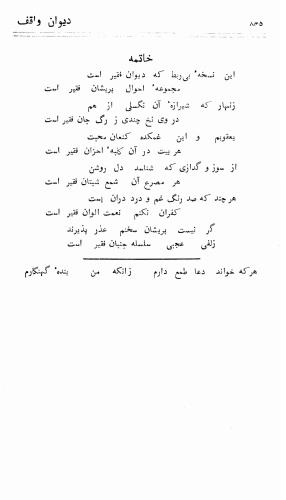 ۸۳۵ دیوان واقف
خاتمه
این نسخهٔ بی‌ربط که دیوان فقیر است
مجموعهٔ احوال پریشان فقیر است
زنهار که شیرازهٔ آن نگسلی از هم
در وی نخ چندی ز رگ جان فقیر است
یعقوبم و این غمکده کنعان محبت
هر بیت در آن کلبهٔ احزان فقیر است
از سوز و گدازی که شناسد دل روشن
هر مصرع آن شمع شبستان فقیر است
هر چند که صد رنگ غم و درد دران است
کفران نکنم نعمت الوان فقیر است
گر نیست پریشان سخنم عذر پذیرند
زلفی عجبی سلسله جنبان فقیر است
هرکه خواند دعا طمع دارم زانکه من بندهٔ گنهگارم